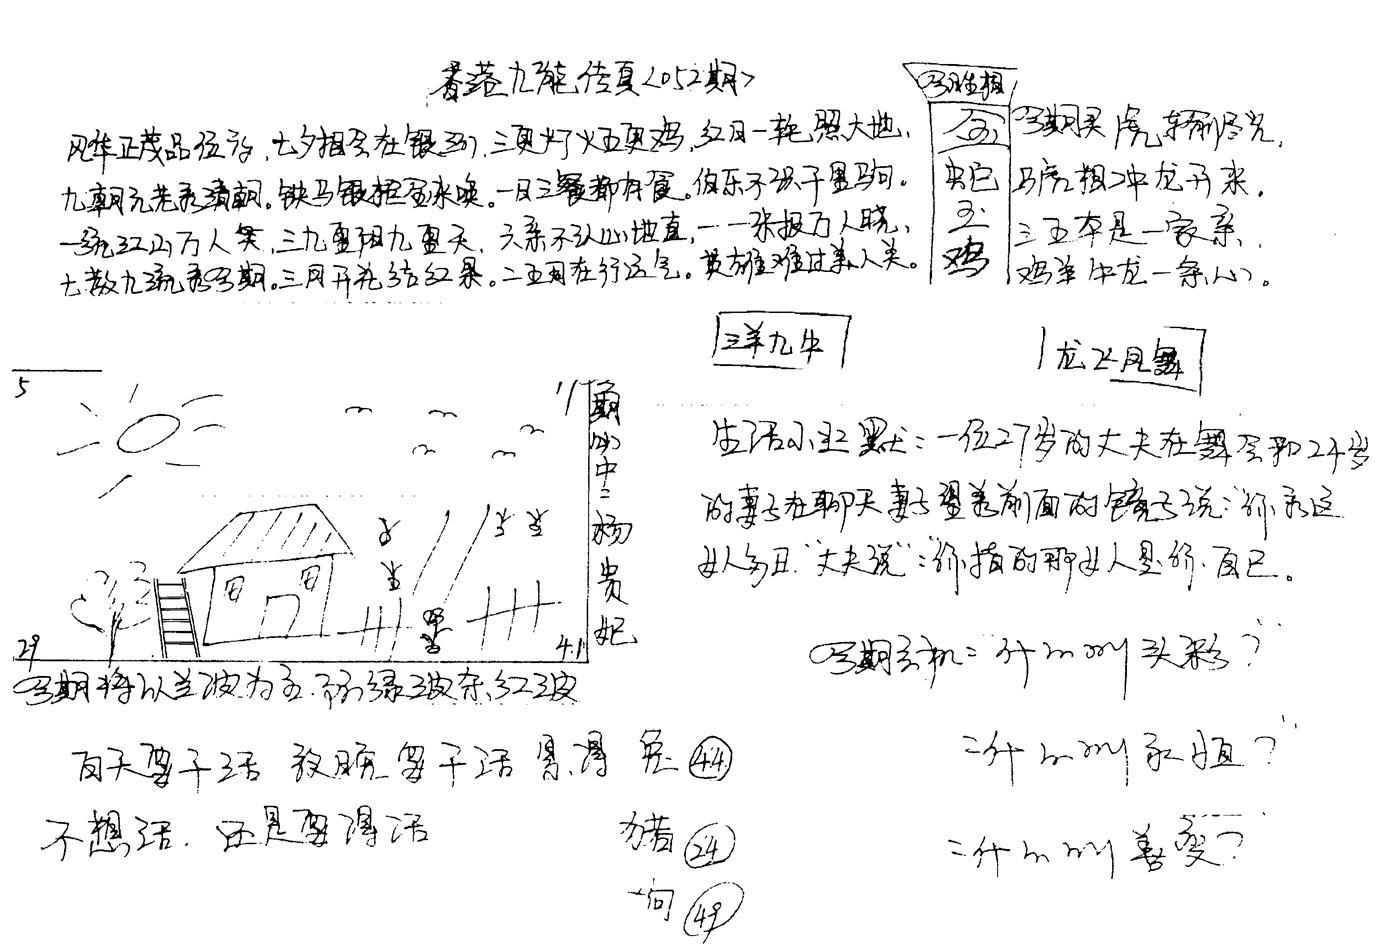 香港九龙传真<052期>
今期生相
风华正茂品位高,七夕相会在银河,三更灯火五更鸡,红日一轮照大地,
九朝元老看清朝。铁马银枪金水唤。一日三餐都有食。伯乐不识千里马向。
一统江山万人笑,三九重阳九重天,六亲不认心地直,一张报万人晓,
七数九流看今期。三月开花结红果。二五月在行运气。英雄难过美人关。
蛇
玉
鸡
今期买虎车输尽光,
马虎相冲龙开来。
三五本是一家亲,
鸡羊牛龙一条心。
三羊九牛
龙飞凤舞
5
11
29
41
期 中二杨贵妃
今期将以兰波为主,防绿波杂红波
生活小幽默:一位27岁的丈夫在舞会和24岁
的妻子在聊天妻子望着前面的镜子说:你看这
女人多丑"丈夫说":你指的那女人是你自己。
今期玄机=什么叫头彩?
=什么叫永恒?
=什么叫善变?
白天要干活 夜晚要干活 累得 兔 44
不想活.还是要得活
猪 24
狗 49